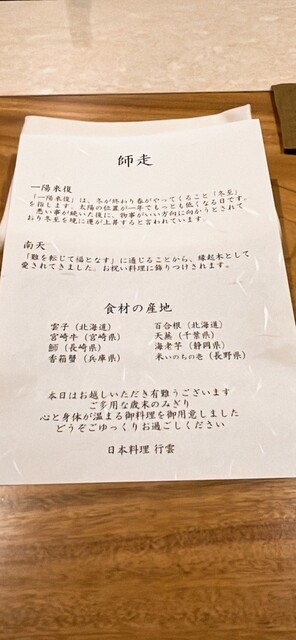 師走
一陽来復
「一陽来復」は、冬が終わり春がやってくること「冬至」
を指します。太陽の位置が一年でもっとも低くなる日です。
悪い事が続いた後に、物事がいい方向に向かうとされて
おり冬至を境に運が上昇すると言われています。
南天
「難を転じて福となす」に通じることから、縁起木として
愛されてきました。お祝い料理に飾りつけされます。
食材の産地
雲子（北海道） 百合根（北海道）
宮崎牛（宮崎県） 天蕪（千葉県）
鰤（長崎県） 海老芋（静岡県）
香箱蟹（兵庫県） 米いのちの壱（長野県）
本日はお越しいただき有難うございます
ご多用な歳末のみぎり
心と身体が温まる御料理を御用意しました
どうぞごゆっくりお過ごしください
日本料理 行雲